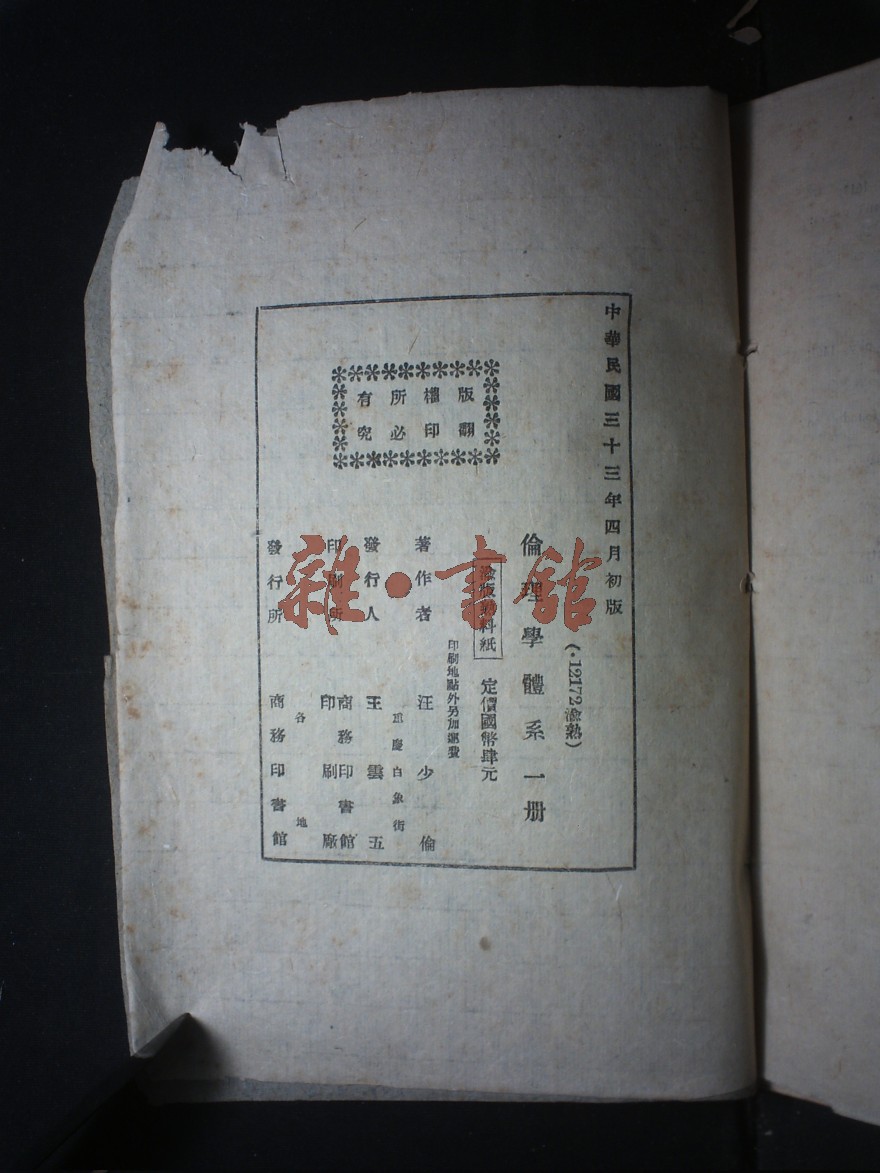 中華民國三十三年四月初版
(·12172渝熟)
倫理學體系一册
渝版熟料紙
定價國幣肆元
印刷地點外另加運費
版權所有
翻印必究
著作者 汪少倫
重慶白象街
發行人 王雲五
印刷所 商務印書館印刷廠
各地
發行所 商務印書館
雜·書館